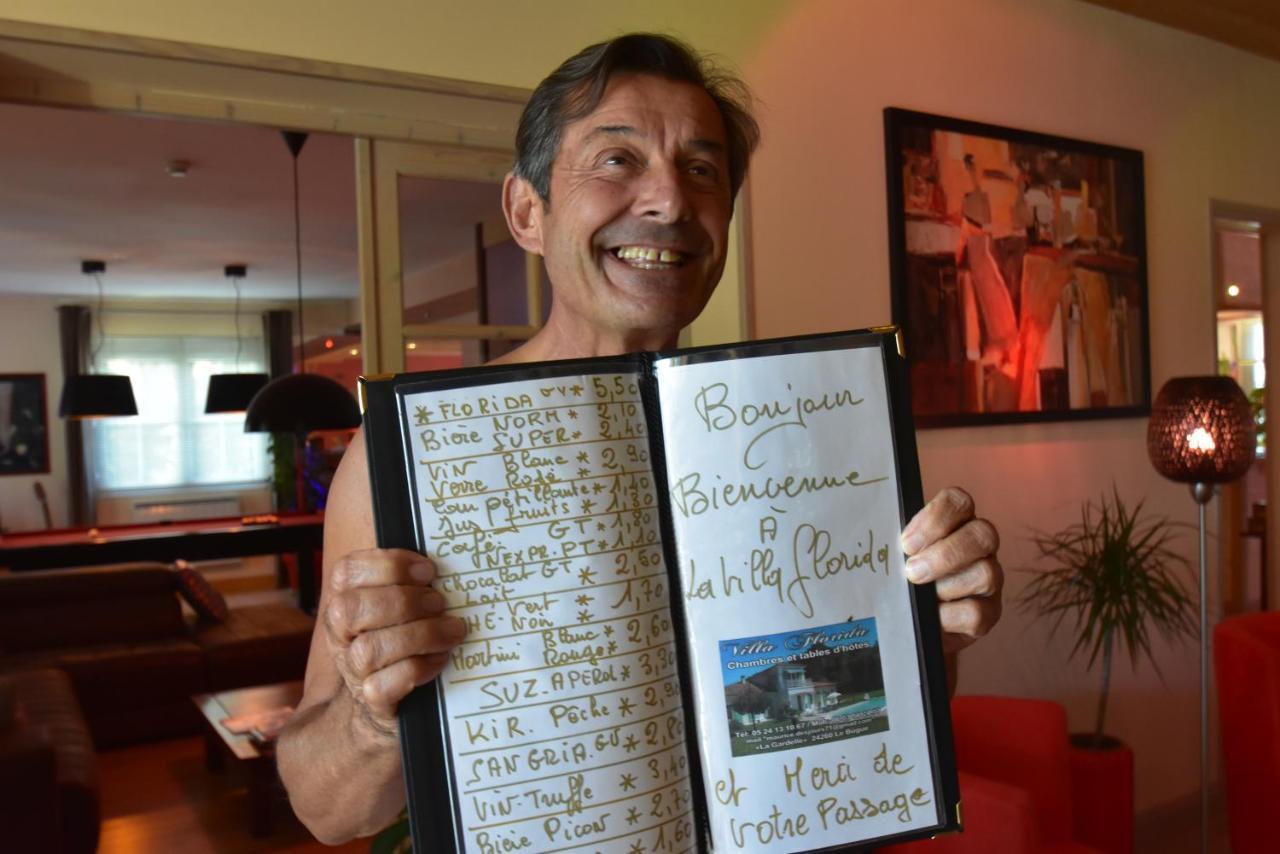 * FLORIDA GV * 5,50
Bière NORM * 2,10
SUPER * 2,40
Vin Blanc * 2,90
Verre Rosé *
Eau pétillante * 1,40
Jus fruits * 1,80
Café GT * 1,80
NEXPR. PT * 1,10
Chocolat GT * 2,50
Lait
THE Vert * 1,70
Noir
Martini Blanc * 2,60
Rouge *
SUZ. APEROL * 3,30
KIR. Pêche * 2,90
SANGRIA. GV * 2,80
VIN-Truffe * 3,40
Bière Picon * 2,70
* 1,60
Bonjour
Bienvenue
À
La Villa Florida
Villa Florida
Chambres et tables d'hôtes
Tél: 05 24 13 10 67
mail "maurice.desjours71@gmail.com
«La Gardelle» 24260 Le Bugue
et Merci de
Votre Passage